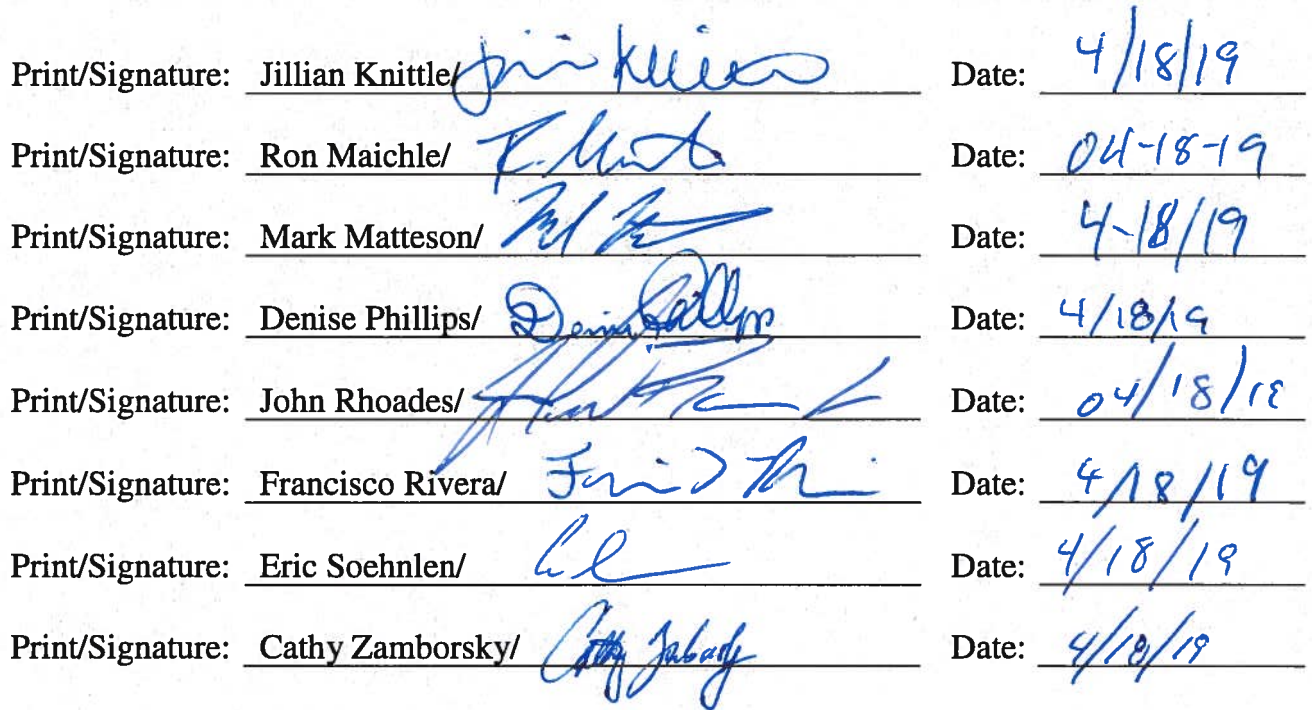 Print/Signature: Jillian Knittle/ Date: 4/18/19
Print/Signature: Ron Maichle/ Date: 04-18-19
Print/Signature: Mark Matteson/ Date: 4-18/19
Print/Signature: Denise Phillips/ Denise Phillips Date: 4/18/19
Print/Signature: John Rhoades/ Date: 04/18/18
Print/Signature: Francisco Rivera/ Date: 4/18/19
Print/Signature: Eric Soehnlen/ Date: 4/18/19
Print/Signature: Cathy Zamborsky/ Cathy Date: 4/18/19